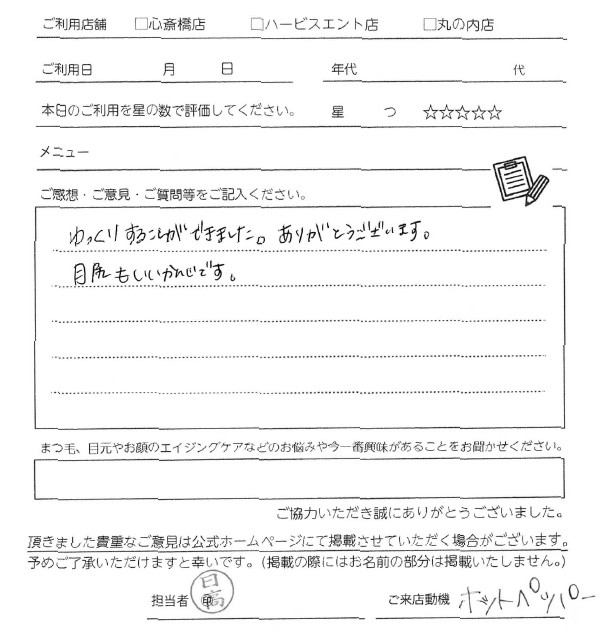 ご利用店舗 □心斎橋店 □ハービスエント店 □丸の内店
ご利用日 月 日 年代 代
本日のご利用を星の数で評価してください。 星 つ ☆☆☆☆☆
メニュー
ご感想・ご意見・ご質問等をご記入ください。
ゆっくりすることができました。ありがとうございます。
目尻もいいかんじです。
まつ毛、目元やお顔のエイジングケアなどのお悩みや今一番興味があることをお聞かせください。
ご協力いただき誠にありがとうございました。
頂きました貴重なご意見は公式ホームページにて掲載させていただく場合がございます。
予めご了承いただけますと幸いです。(掲載の際にはお名前の部分は掲載いたしません。)
担当者 日高 印 ご来店動機 ホットペッパー